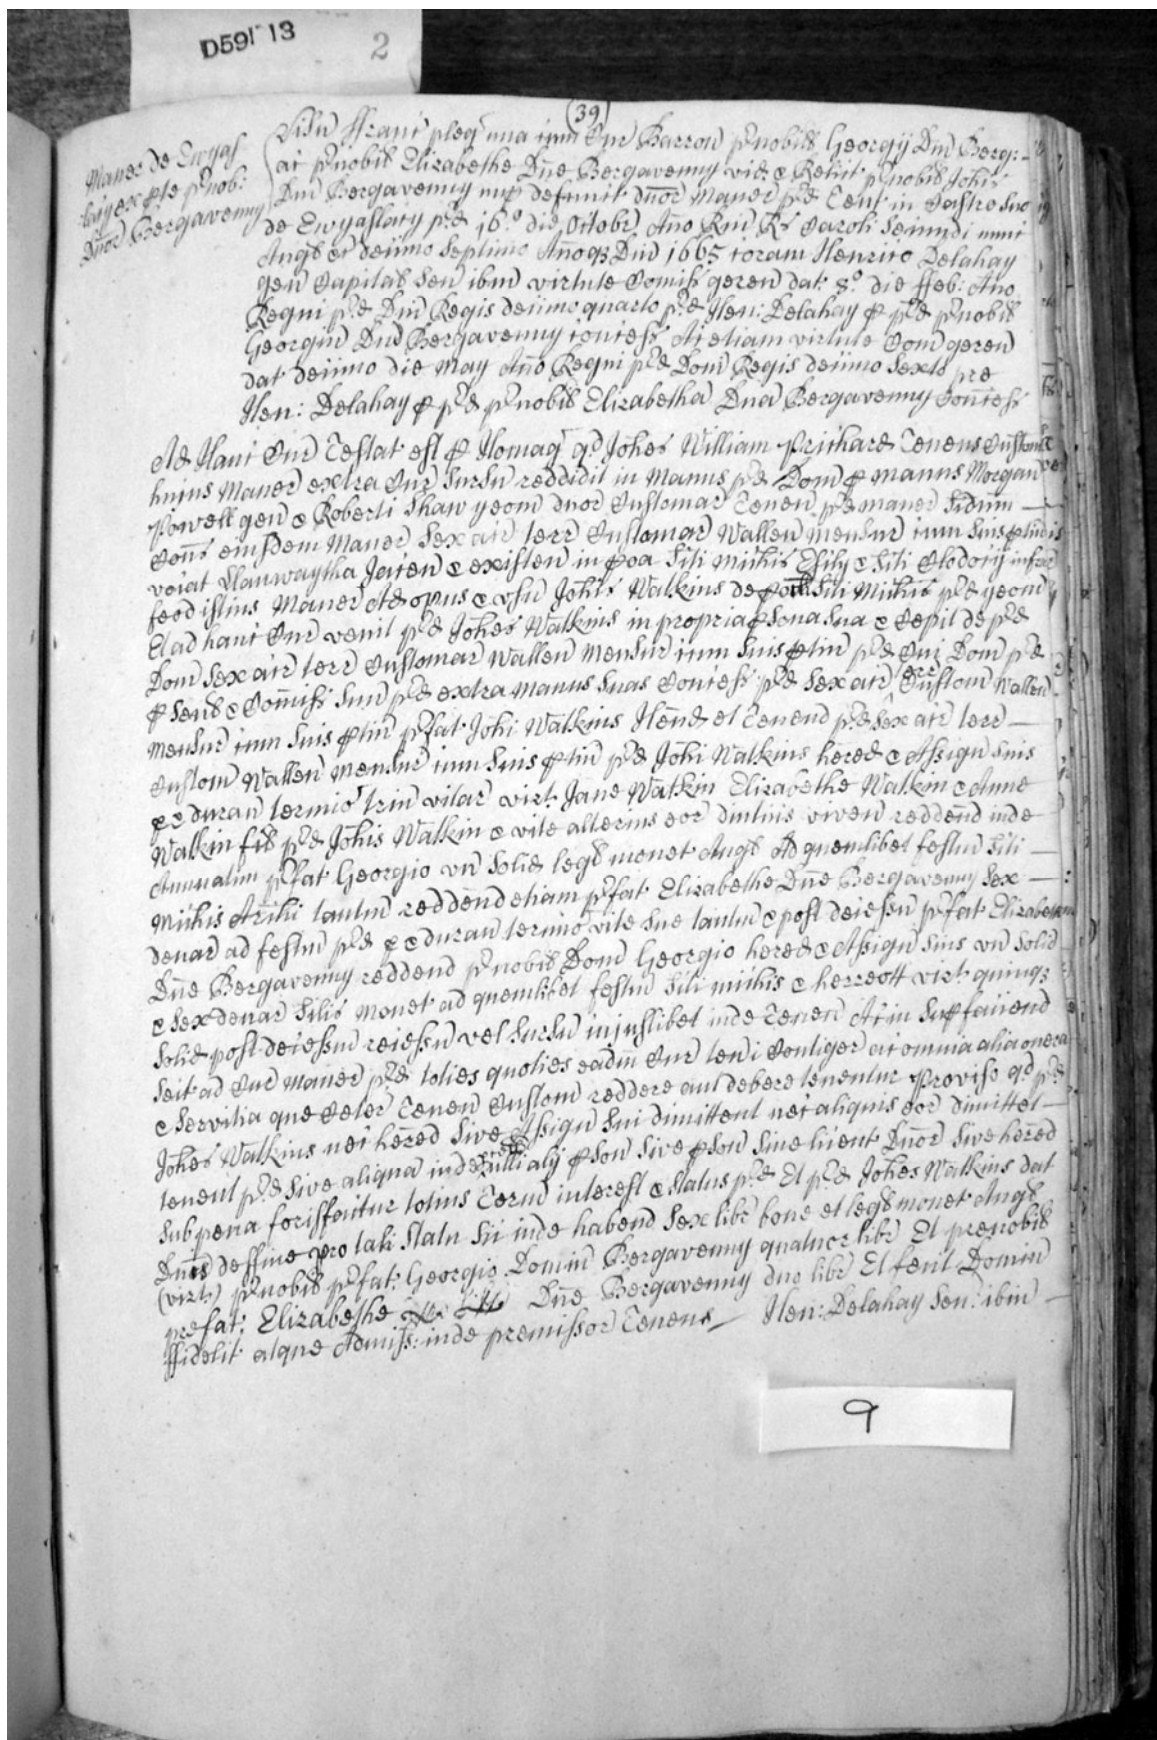 D591 13
2
(39)
Maner de Ewyas
lacy ex pte prnob:
Dnor Bergavenny
Visu ffranc pleg una cum Cur Barron prnobil Georgij Dni Berg:
ac prnobil Elizabethe Dne Bergavenny vid & Relict prnobil Johis
Dni Bergavenny nup defunct dnor Maner pred Tent in Castro suo
de Ewyaslacy pred 16o die Octobr Ano Rni Rs Caroli Secundi nunc
Angl &c decimo septimo Anoq Dni 1665 coram Henrico Delahay
gen Capital Sen ibm virtute Comiss geren dat 8o die ffeb: Ano
Regni pred Dni Regis decimo quarto pred Hen: Delahay p pred prnobil
Georgiu Dnu Bergavenny concess Ac etiam virtute Com geren
dat decimo die May Ano Regni pred Dom Regis decimo sexto pre
Hen: Delahay p pred prnobil Elizabetha Dna Bergavenny Concess
Ad Hanc Cur Testat est p Homag qd Johes William Prichard Tenens Custom
huius Maner extra Cur sursu reddidit in Manus pred Dom p manus Morgan
Powell gen & Roberti Shaw yeom duor Customar Tenen pred maner Scdum
Cons eiusdem Maner Sex acr terr Customar Wallen mensur cum suis ptin
vocat Llanwaytha Jacen & existen in poa Sci Michis Eskly & Sci Clodocij infra
feod istius Maner Ad opus & usu Johis Watkins de poch Sci Michis pred yeom
Et ad hanc Cur venit pred Johes Watkins in propria psona sua & Cepit de pred
Dom Sex acr terr Customar Wallen Mensur cum suis ptin pred Qui Dom pred
p Senl & Comiss suu pred extra manus suas Concess pred Sex acr terr Custom Wallen
Mensur cum suis ptin prfat Johi Watkins Hend et Tenend pred Sex acr terr
Custom Wallen Mensur cum suis ptin pred Johi Watkins hered & Assign suis
p & duran termio triu vitar vizt Jane Watkin Elizabethe Watkin & Anne
Watkin fil pred Johis Watkin & vite alterius eor diutius viven reddend inde
Annuatim prfat Georgio un solid legl monet Angl Ad quemlibet festu Sci
Michis Archi tantum reddend etiam prfat Elizabethe Dne Bergavenny Sex
denar ad festu pred p & duran termino vite sue tantu & post decessu prfat Elizabethe
Dne Bergavenny reddend prnobil Dom Georgio hered & Assign suis un solid
& Sex denar Silis monet ad quemlibet festu Sci michis & herreott vizt quinq
Solid post decessu recessu vel sursu cujuslibet inde Tenen Ac in Sup faciend
Sect ad Cur Maner pred toties quoties eadm Cur teni Contiger ac omnia alia onera
& Servitia que Ceter Tenen Custom reddere aut debere tenentur Proviso qd pred
Johes Watkins nec hered sive Assign sui dimittent nec aliquis eor dimittet
tenent pred sive aliqua inde pcell ulli alij pson sive pson sine licent Dnor sive hered
sub pena forisfacitur totius Termi interest & status pred Et pred Johes Watkins dat
Dnis de ffine pro tali statu sic inde habend Sex libr bone et legl monet Angl
(vizt) prnobil prfat: Georgio Domin Bergavenny quatuor libr Et prenobil
prefat: Elizabethe Dne Bergavenny duo libr Et fecit Domin
ffidelit atque Admiss: inde premissor Tenens Hen: Delahay Sen: ibm
9